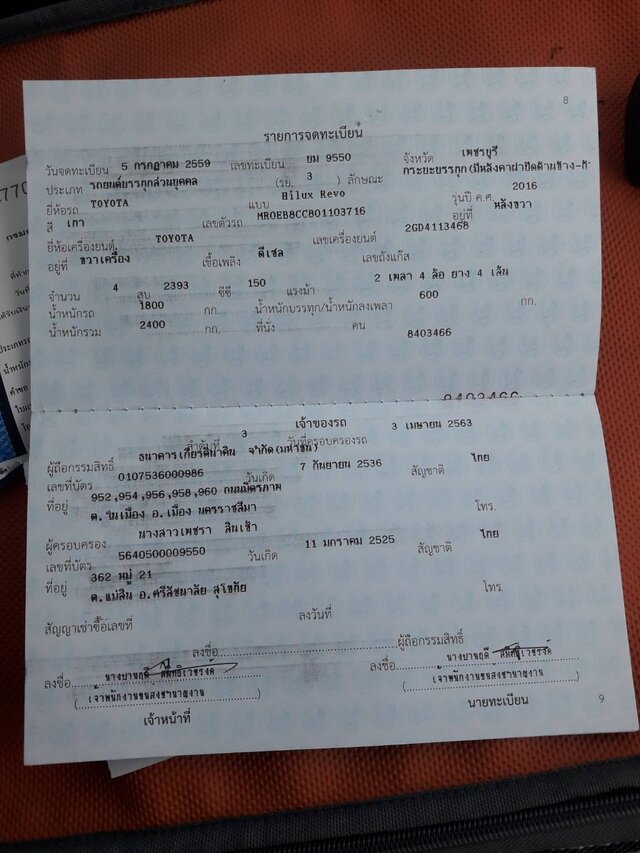 8
รายการจดทะเบียน
วันจดทะเบียน 5 กรกฎาคม 2559 เลขทะเบียน ยม 9550 จังหวัด เพชรบุรี
ประเภท รถยนต์บรรทุกส่วนบุคคล (รย. 3 ) ลักษณะ กระบะบรรทุก (มีหลังคาฝาปิดด้านข้าง-ท้
ยี่ห้อรถ TOYOTA แบบ Hilux Revo รุ่นปี ค.ศ. 2016
สี เทา เลขตัวรถ MR0EB8CC801103716 อยู่ที่ หลังขวา
ยี่ห้อเครื่องยนต์ TOYOTA เลขเครื่องยนต์ 2GD4113468
อยู่ที่ ขวาเครื่อง เชื้อเพลิง ดีเซล เลขถังแก๊ส
จำนวน 4 สูบ 2393 ซีซี 150 แรงม้า 2 เพลา 4 ล้อ ยาง 4 เส้น
น้ำหนักรถ 1800 กก. น้ำหนักบรรทุก/น้ำหนักลงเพลา 600 กก.
น้ำหนักรวม 2400 กก. ที่นั่ง คน 8403466
8403466
เจ้าของรถ
ลำดับที่ 3 วันที่ครอบครองรถ 3 เมษายน 2563
ผู้ถือกรรมสิทธิ์ ธนาคารเกียรตินาคิน จำกัด(มหาชน)
เลขที่บัตร 0107536000986 วันเกิด 7 กันยายน 2536 สัญชาติ ไทย
ที่อยู่ 952,954,956,958,960 ถนนมิตรภาพ
ต.ในเมือง อ.เมือง นครราชสีมา โทร.
ผู้ครอบครอง นางสาวเพชรา สินเช้า
เลขที่บัตร 5640500009550 วันเกิด 11 มกราคม 2525 สัญชาติ ไทย
ที่อยู่ 362 หมู่ 21
ต.แม่สิน อ.ศรีสัชนาลัย สุโขทัย โทร.
สัญญาเช่าซื้อเลขที่ ลงวันที่
ลงชื่อ ผู้ถือกรรมสิทธิ์
ลงชื่อ ลงชื่อ
(เจ้าพนักงานขนส่งชำนาญงาน) (เจ้าพนักงานขนส่งชำนาญงาน)
เจ้าหน้าที่ นายทะเบียน
9